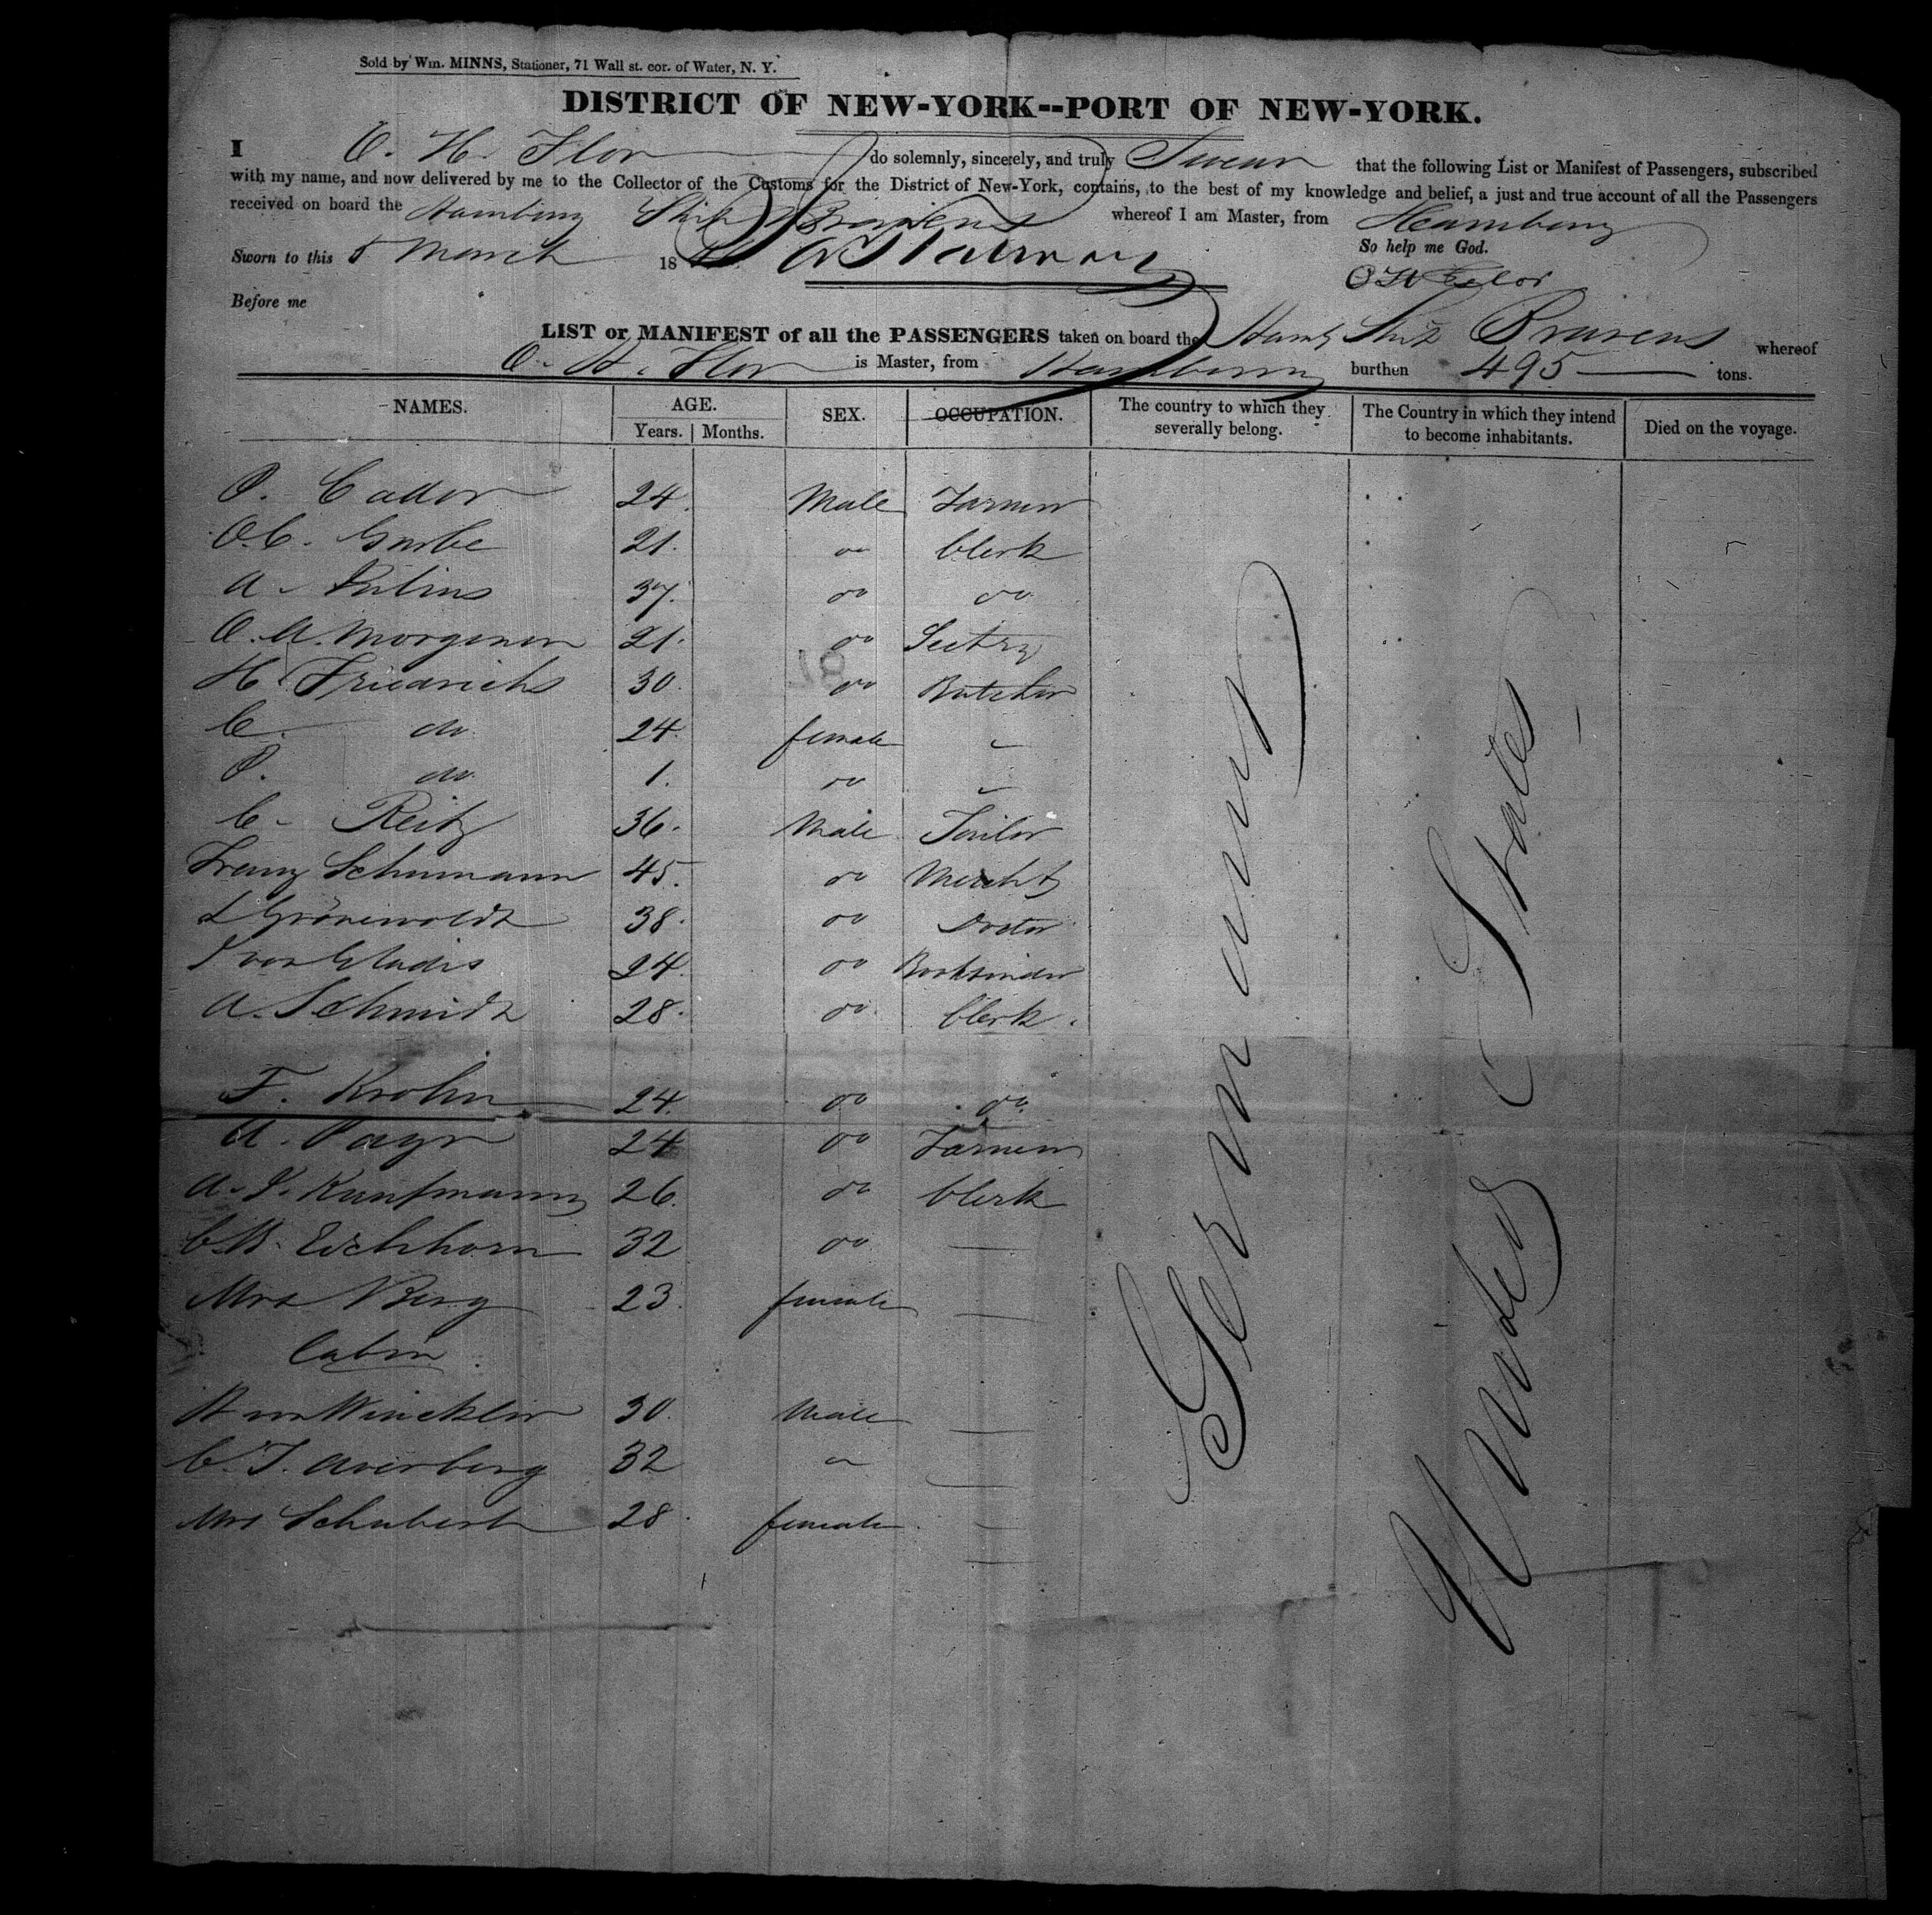 Sold by Wm. MINNS, Stationer, 71 Wall st. cor. of Water, N. Y.
DISTRICT OF NEW-YORK--PORT OF NEW-YORK.
I O. H. Flor do solemnly, sincerely, and truly Swear that the following List or Manifest of Passengers, subscribed
with my name, and now delivered by me to the Collector of the Customs for the District of New-York, contains, to the best of my knowledge and belief, a just and true account of all the Passengers
received on board the Hamburg Ship whereof I am Master, from Hamburg
Sworn to this 5 March 18 So help me God.
Before me
LIST or MANIFEST of all the PASSENGERS taken on board the Hambg Ship whereof
O. H. Flor is Master, from Hamburg burthen 495 tons.
NAMES. AGE. SEX. OCCUPATION. The country to which they severally belong. The Country in which they intend to become inhabitants. Died on the voyage.
Years. Months.
24. Male Farmer
21. do Clerk
A. Julius 37. do do
21. do
H. Friedrichs 30. do Butcher
C. do 24. female -
do 1. do -
C. Reitz 36. Male Tailor
Franz Schumann 45. do Mercht
38. do Doctor
24. do Bookbinder
A. Schmidt 28. do Clerk.
F. Krohn 24. do do
24 do Farmer
Kaufmann 26. do Clerk
Eichhorn 32 do —
Mrs Berg 23. female —
Cabin
H von Winckler 30. Male —
C. T. Averberg 32 do —
Mrs Schubert 28. female —
Germany
United States